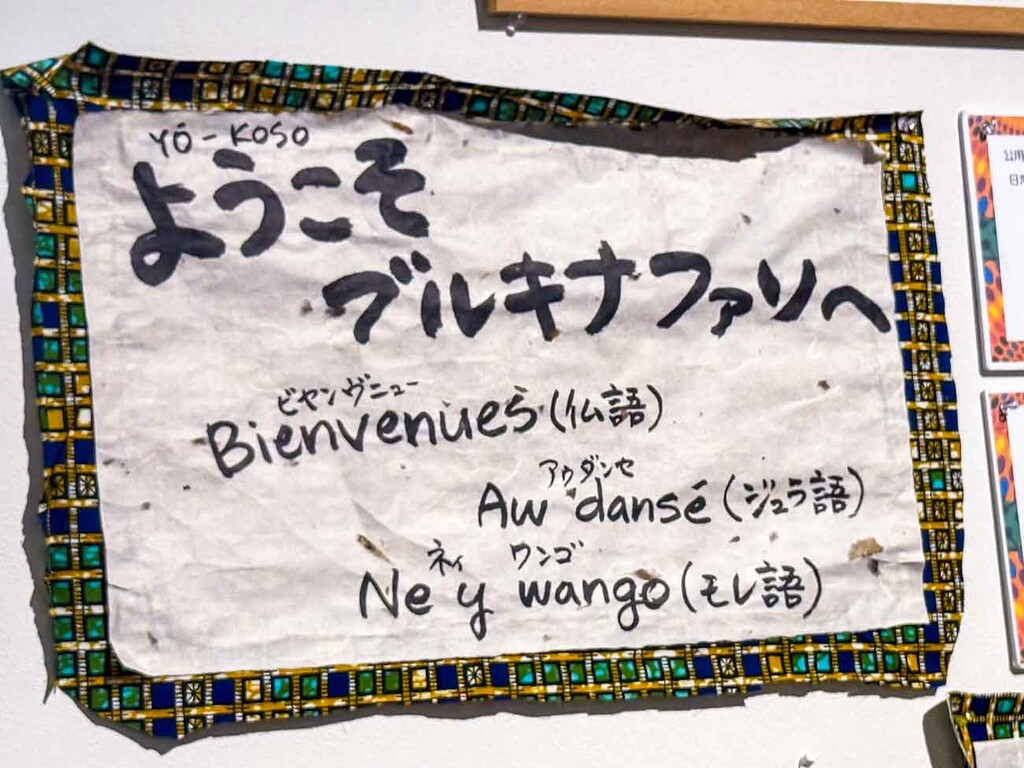 YŌ-KOSO
ようこそ
ブルキナファソへ
ビヤンヴニュー
Bienvenues(仏語)
アゥダンセ
Aw dansé(ジュラ語)
ネィ ワンゴ
Ne y wango(モレ語)
公用